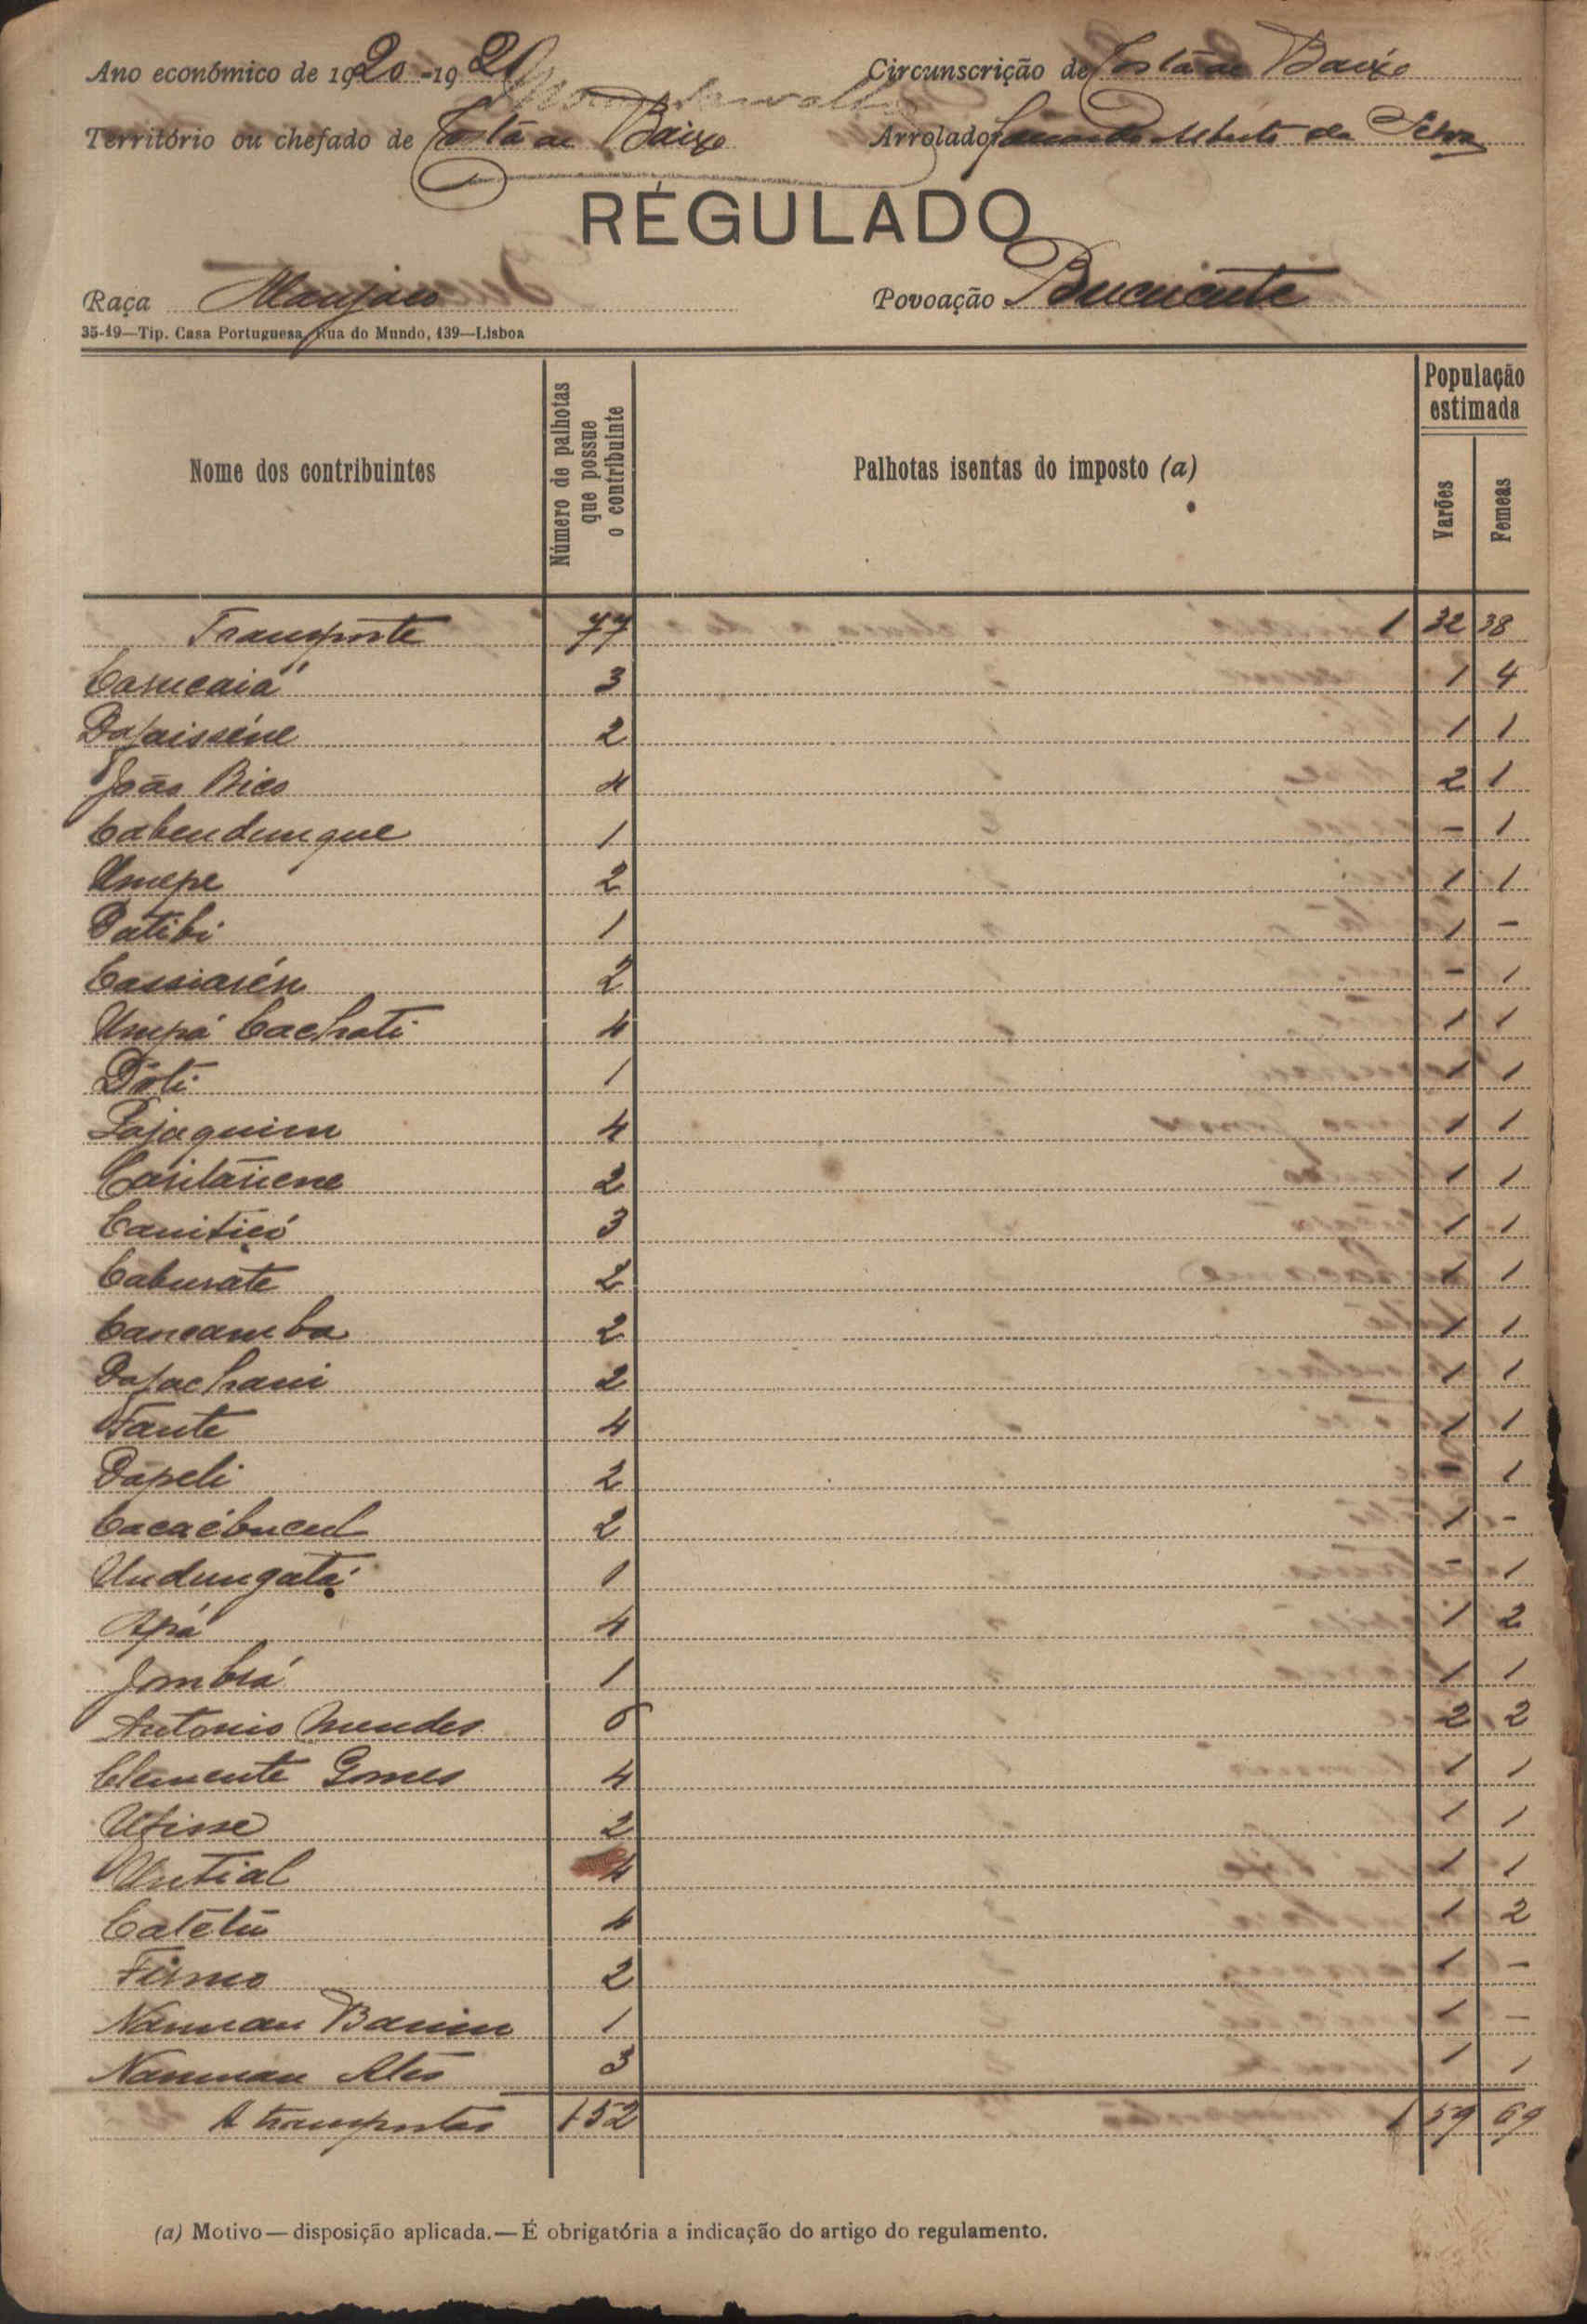 Ano económico de 1920-1921
Circunscrição de Costa de Baixo
Território ou chefado de Costa de Baixo
Arrolador Alberto da Silva
RÉGULADO
Raça Manjaco
Povoação Bucucute
35-19—Tip. Casa Portuguesa, Rua do Mundo, 139—Lisboa
Nome dos contribuintes
Número de palhotas que possue o contribuinte
Palhotas isentas do imposto (a)
População estimada
Varões
Femeas
Transporte 77 1 32 38
Carucaiá 3 1 4
Dafaisséne 2 1 1
João Bico 4 2 1
Cabendunque 1 - 1
Umepe 2 1 1
Datibi 1 1 -
Cassiarén 2 - 1
Umpá Cachati 4 1 1
Dóti 1 1 1
Pajaquim 4 1 1
Caritáriene 2 1 1
Caniticó 3 1 1
Caburate 2 1 1
Cancamba 2 1 1
Dafachami 2 1 1
Fante 4 1 1
Dápeli 2 - 1
Cacaébucul 2 1 -
Undungatá 1 - 1
Apá 4 1 2
Jombrá 1 1 1
Antonio Mendes 6 2 2
Clemente Gomes 4 1 1
Ufisse 2 1 1
Untial 4 1 1
Catétu 4 1 2
Firmo 2 1 -
Naman Banim 1 1 -
Naman Ató 3 1 1
A transportar 152 1 59 69
(a) Motivo—disposição aplicada.—É obrigatória a indicação do artigo do regulamento.